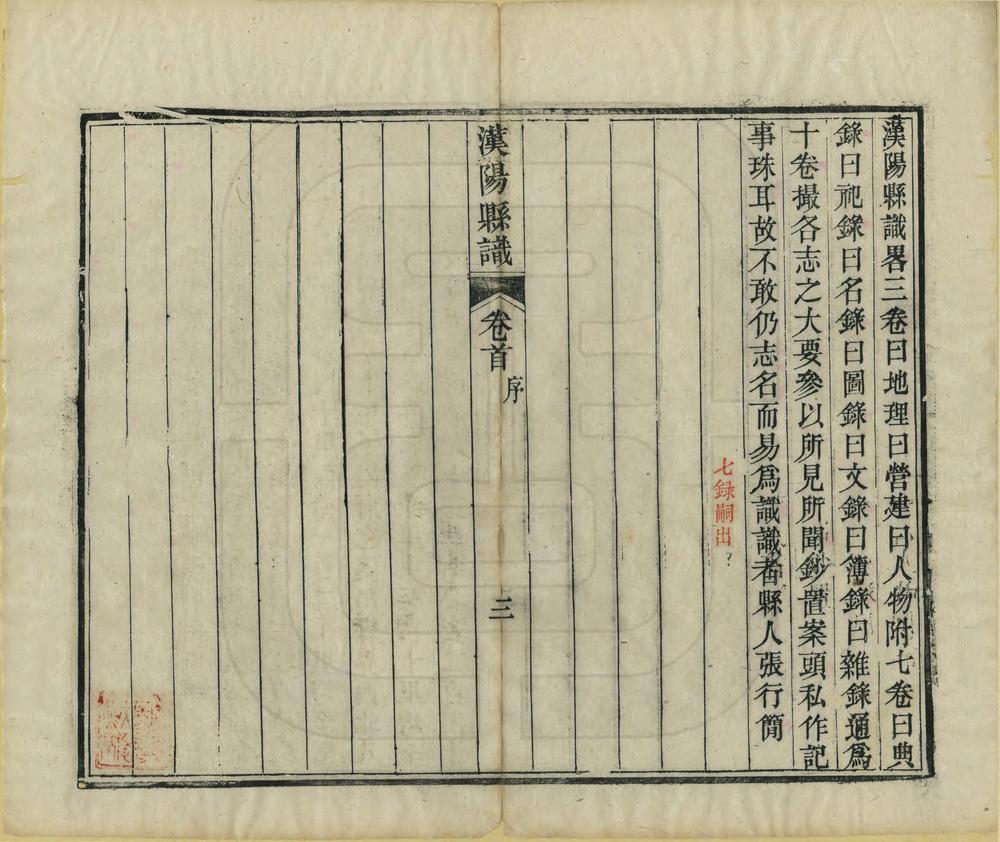 漢陽縣識畧三卷曰地理曰營建曰人物附七卷曰典
錄曰祀錄曰名錄曰圖錄曰文錄曰簿錄曰雜錄通爲
十卷撮各志之大要參以所見所聞鈔置案頭私作記
事珠耳故不敢仍志名而易爲識識者縣人張行簡
七録嗣出
漢陽縣識
卷首
序
三